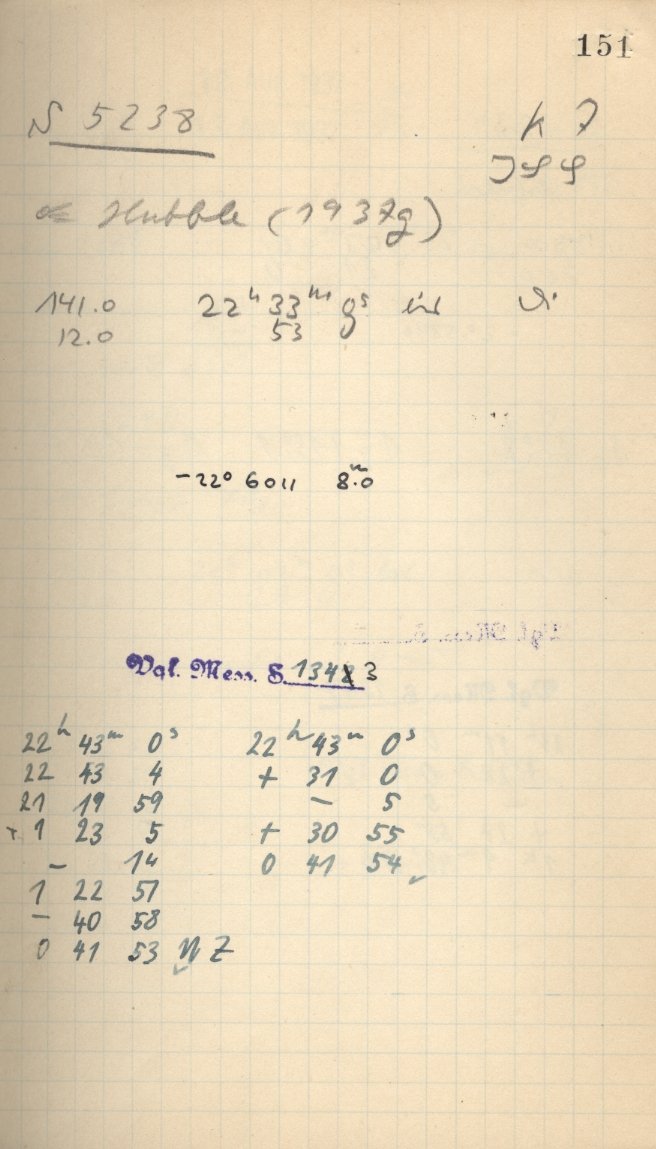 151
S 5238
Hubble (1937g)
141.0 22h 33m 9s
12.0 53
-22° 6011 8m.0
Vgl. Mess. S. 1342 3
22h 43m 0s 22h 43m 0s
22 43 4 + 31 0
21 19 59 - 5
+ 1 23 5 + 30 55
- 14 0 41 54
1 22 51
- 40 58
0 41 53 NZ